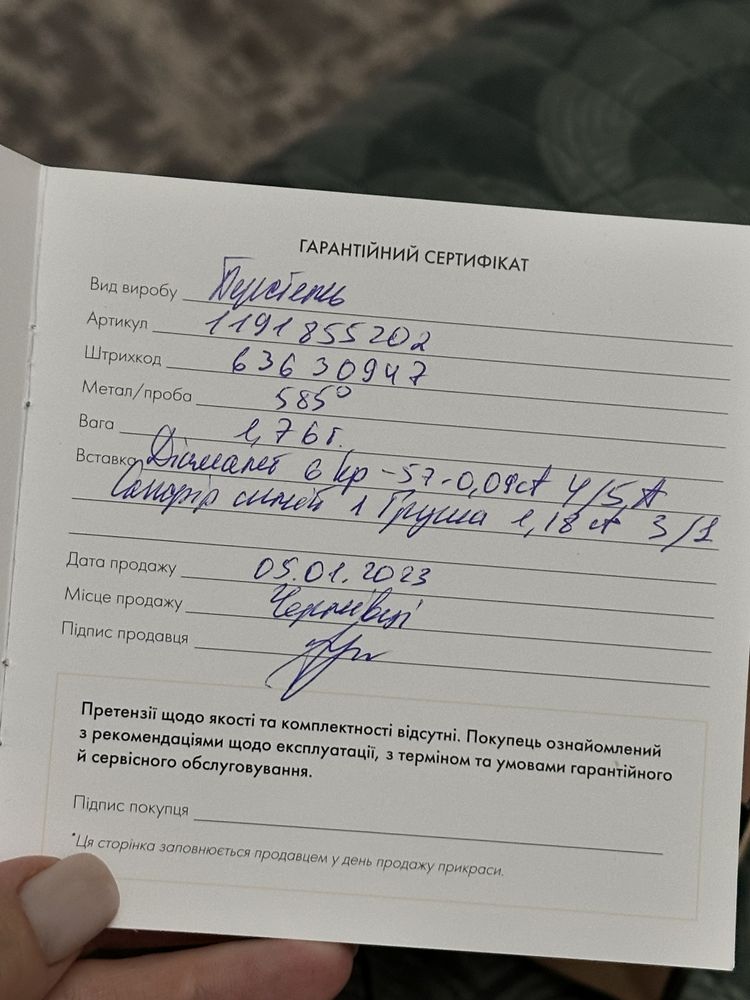 ГАРАНТІЙНИЙ СЕРТИФІКАТ
Вид виробу Перстень
Артикул 1191855202
Штрихкод 63630947
Метал/проба 585°
Вага 1,76 г.
Вставка Діамант 6 Кр-57-0,09ct 4/5 А
Сапфір синій 1 Груша 1,18 ct 3/1
Дата продажу 05.01.2023
Місце продажу Чернівці
Підпис продавця
Претензії щодо якості та комплектності відсутні. Покупець ознайомлений
з рекомендаціями щодо експлуатації, з терміном та умовами гарантійного
й сервісного обслуговування.
Підпис покупця
*Ця сторінка заповнюється продавцем у день продажу прикраси.